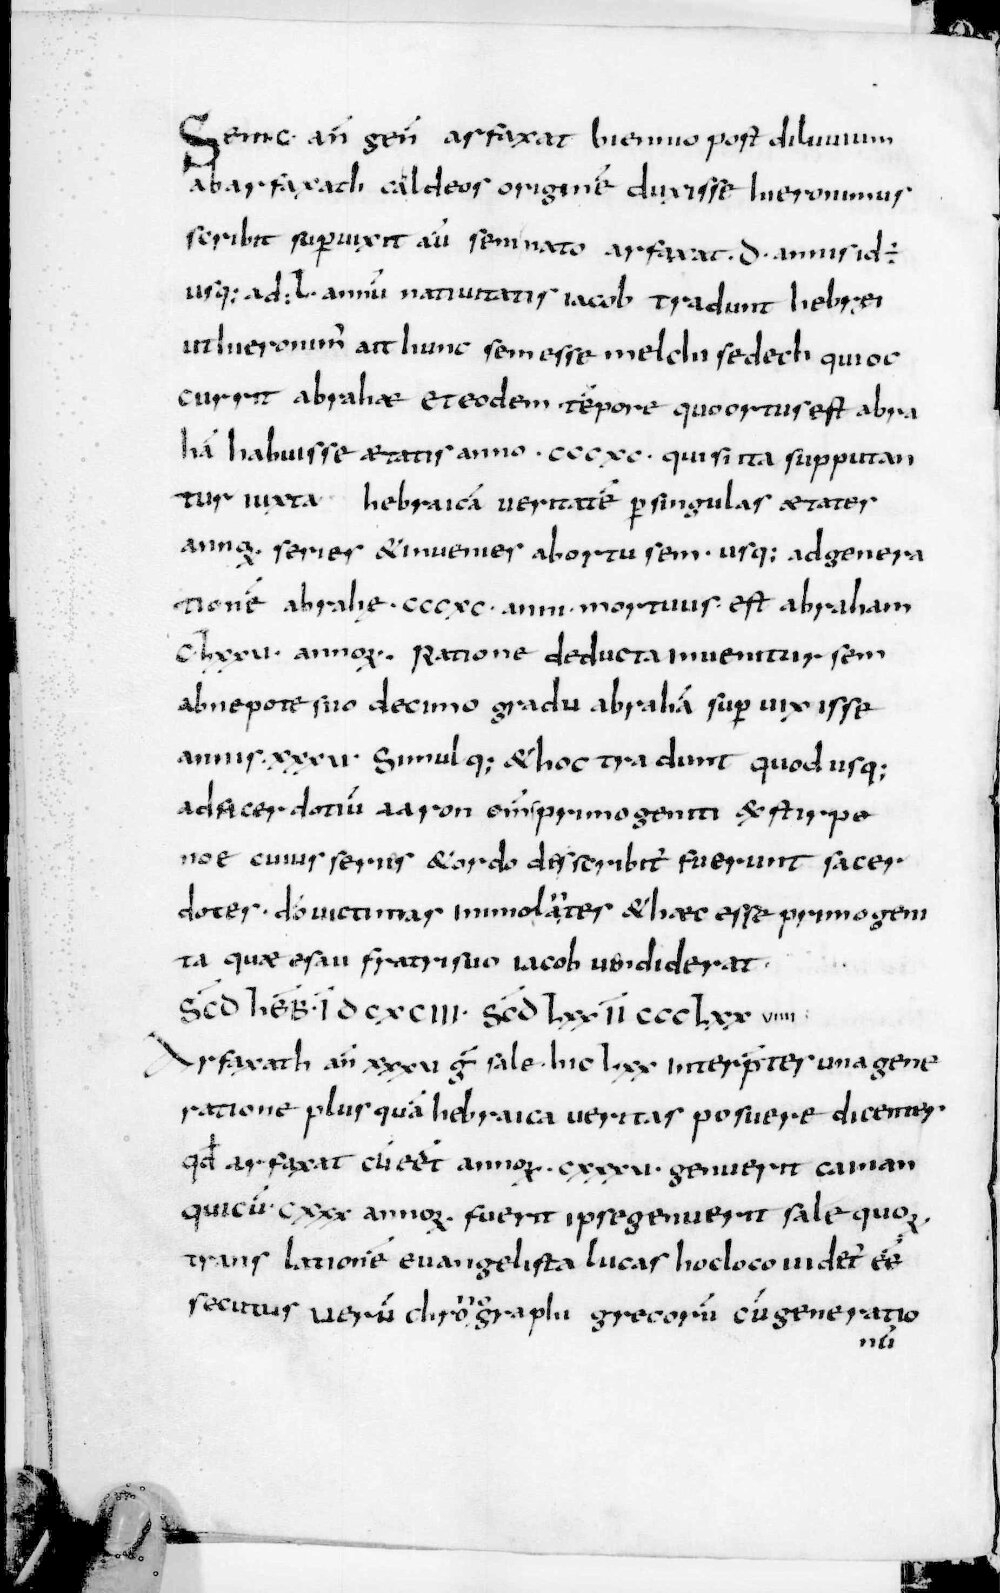 Sem·c· añ geñ arfaxat biennio post diluuium
ab arfaxath caldeos originē duxisse hieronimus
scribit supuixit aū sem nato arfaxat· d· annis id÷
usq; ad·L· annū natiuitatis iacob tradunt hebręi
ut hieronim̃ ait hunc sem esse melchisedech qui oc
currit abrahæ et eodem tēpore quo ortus est abra
hā habuisse ætatis anno · cccxc · qui si ita supputan
tur iuxta hebraicā ueritatē p singulas ætates
annoꝝ series & inuenies ab ortu sem · usq; ad genera
tionē abrahę · cccxc · anni · mortuus · est abraham
clxxu · annoꝝ · Ratione deducta inuenitur sem
abnepote suo decimo gradu abrahā sup uixisse
annis · xxxu · Simulq; & hoc tradunt quod usq;
ad sacerdotiū aaron om̄s primogeniti & stirpe
noe cuius seriis & ordo discribit̃ fuerunt sacer
dotes · dō uictimas immolātes & hæc esse primogeni
ta quæ esau fratri suo iacob uendiderat ·
Scd̄ hēb · Ī dcxciii · Scd̄ lxx ĪĪ ccclxx uiiii ·
Arfaxath añ xxxu ḡ sale · hic lxx interp̄tes una gene
ratione plus quā hebraica ueritas posuere dicentes
qđ arfaxat cū eēt annoꝝ · cxxxu · genuerit cainan
qui cū · cxxx annoꝝ · fuerit ipse genuerit sale quoꝝ
trans lationē euangelista lucas hoc loco uidet̃ eē
secutus uerū chronographi grecorū cū generatio
nū